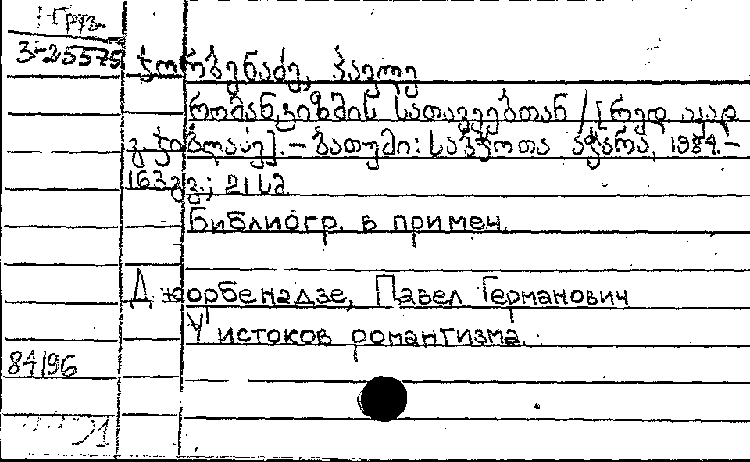 Груз.
3-25575
ჯორბენაძე, პავლე
რომანტიზმის სათავეებთან / [რედ. აკად.
გ. ჯიბლაძე]. – ბათუმი: საბჭოთა აჭარა, 1984. –
163 გვ.; 21 სმ
Библиогр. в примеч.
Джорбенадзе, Павел Германович
У истоков романтизма.
84196